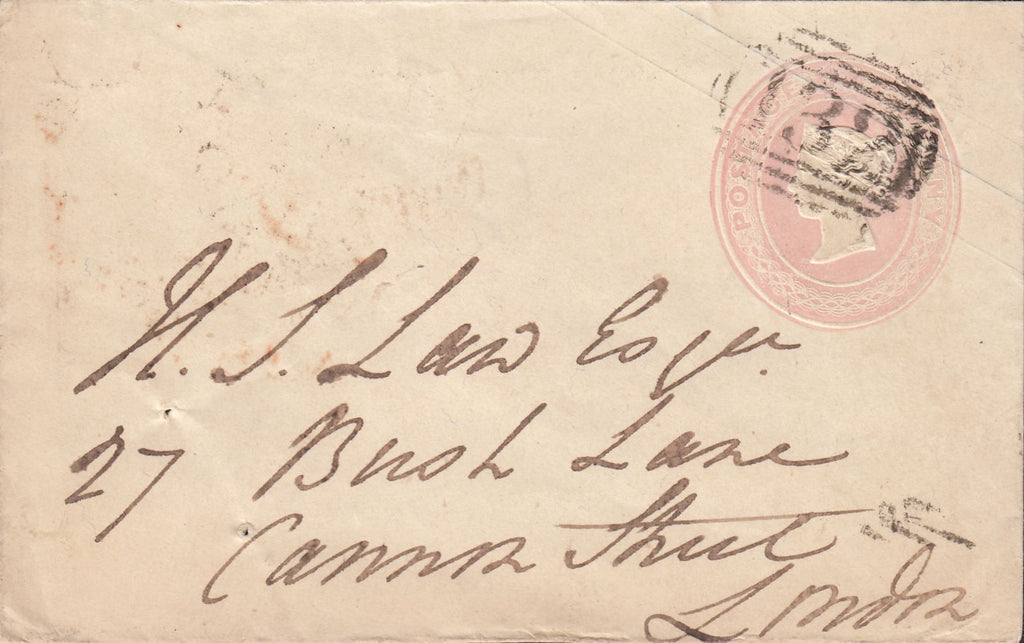 POSTAGE ONE PENNY
H. S. Law Esqre.
27 Bush Lane
Cannon Street
London